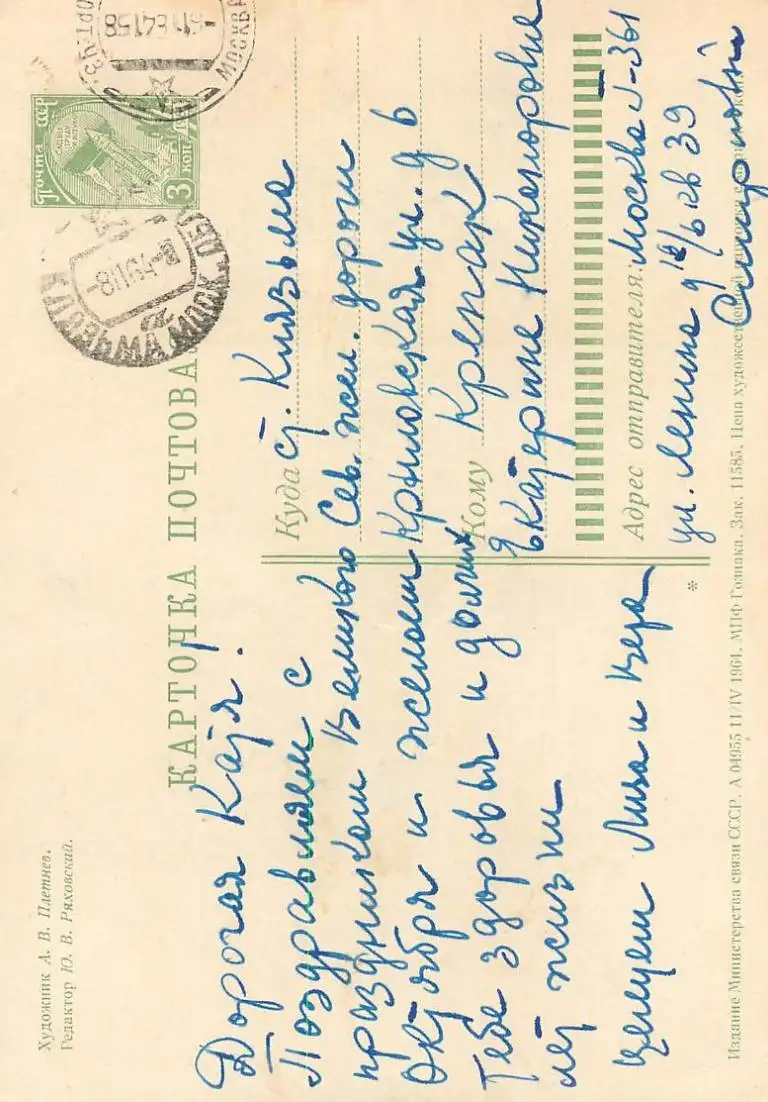 Художник А. В. Плетнев.
Редактор Ю. В. Ряховский.
КАРТОЧКА ПОЧТОВАЯ
Почта СССР
3 коп
КЛЯЗЬМА МОСК. ОБЛ
МОСКВА
Дорогая Катя!
Поздравляем с
праздником Великого
Октября и желаем
Тебе здоровья и долгих
лет жизни
Целуем Лиза и Вера
Куда ст. Клязьма
Сев. жел. дороги
Крыловская ул. д 6
Кому Крепак
Екатерине Никаноровне
Адрес отправителя: Москва Г-361
ул. Ленина д 12/6 кв 39
Издание Министерства связи СССР. А 04955 11/IV 1964. МПФ Гознака. Зак. 11585. Цена художественной